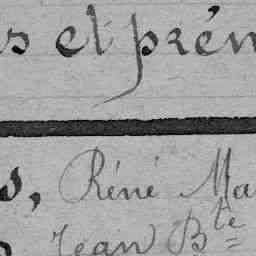 s et prén
s, Réné Ma
s Jean Bte